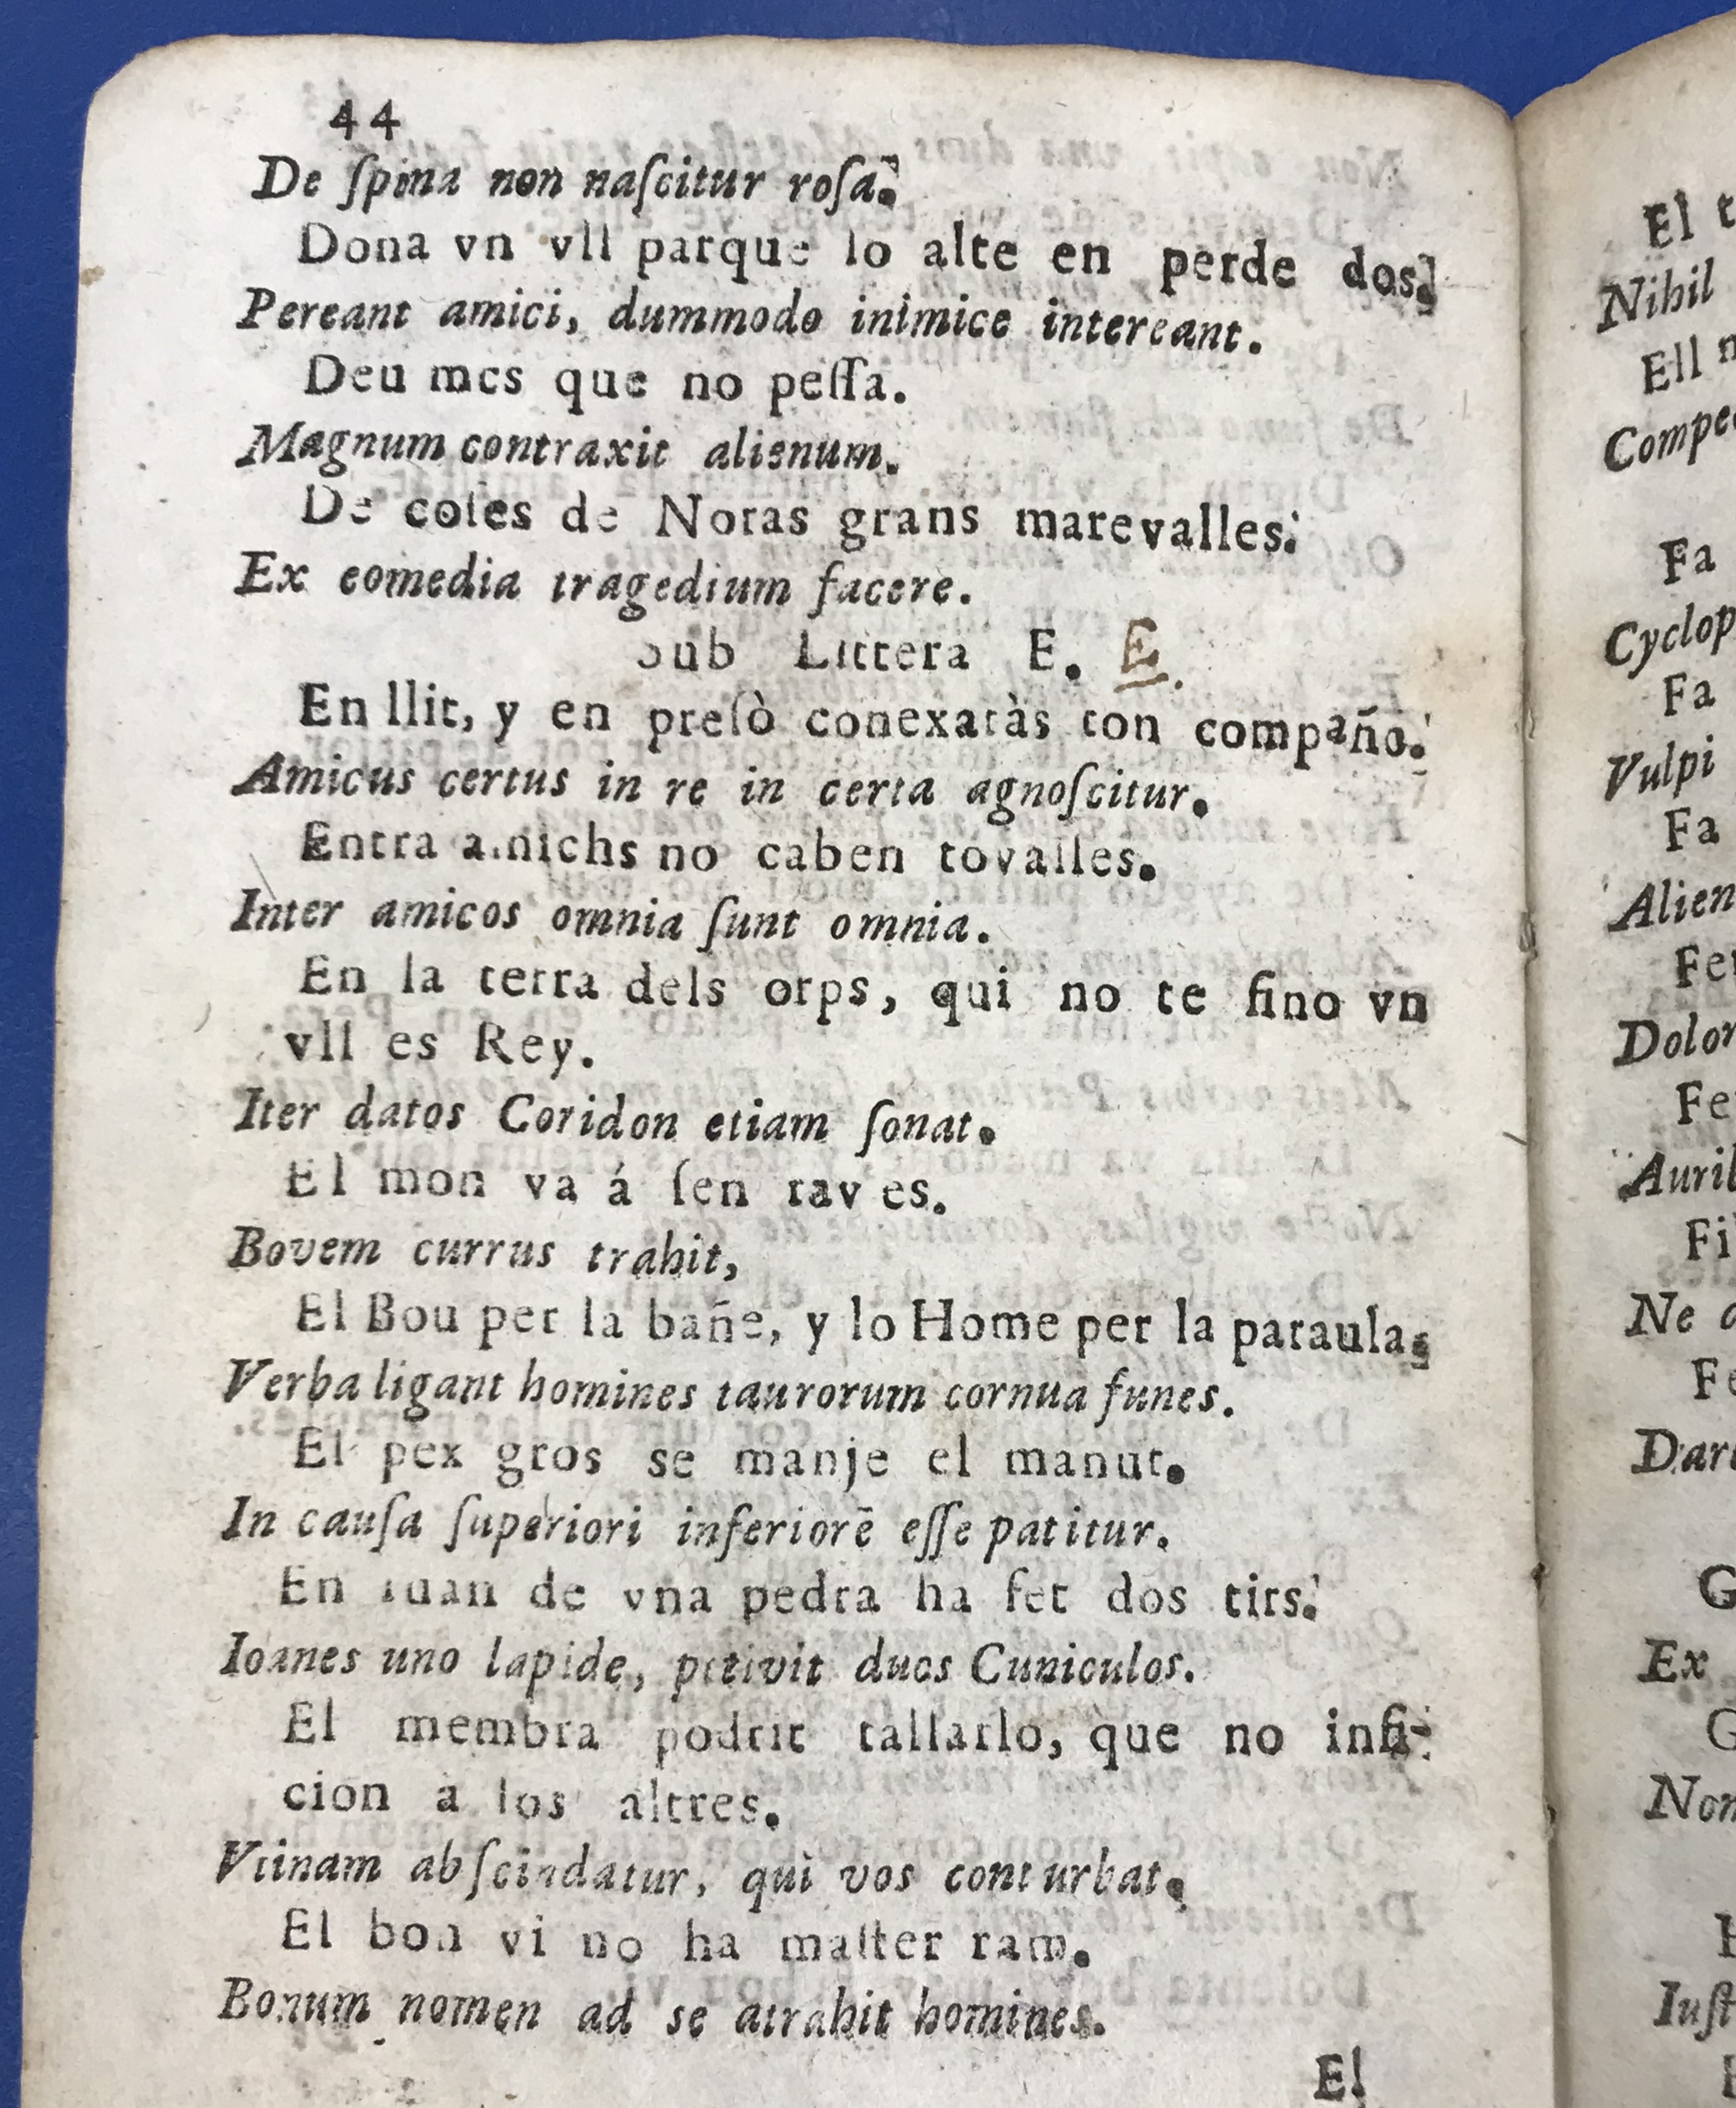 44
De ſpina non naſcitur roſa.
Dona vn vll parque lo alte en perde dos.
Pereant amici, dummodo inimice intereant.
Deu mes que no peſſa.
Magnum contraxit alienum.
De coſes de Noras grans marevalles.
Ex eomedia tragedium facere.
Sub Littera E. E.
En llit, y en preſò conexaràs ton compaño.
Amicus certus in re in certa agnoſcitur.
Entra amichs no caben tovalles.
Inter amicos omnia ſunt omnia.
En la terra dels orps, qui no te ſino vn
vll es Rey.
Iter datos Coridon etiam ſonat.
El mon va á ſen rav es.
Bovem currus trahit,
El Bou per la bañe, y lo Home per la paraula.
Verba ligant homines taurorum cornua funes.
El pex gros se manje el manut.
In cauſa ſuperiori inferiorē eſſe patitur.
En Iuan de vna pedra ha fet dos tirs.
Ioanes uno lapide, petivit duos Cuniculos.
El membra podrit tallarlo, que no infi-
cion a los altres.
Vtinam abſcindatur, qui vos cont urbat.
El bon vi no ha maſter ram.
Bonum nomen ad se atrahit homines.
El
El
Nihil
Ell
Fa
Fa
Vulpi
Fa
Alien
Ne
Ex